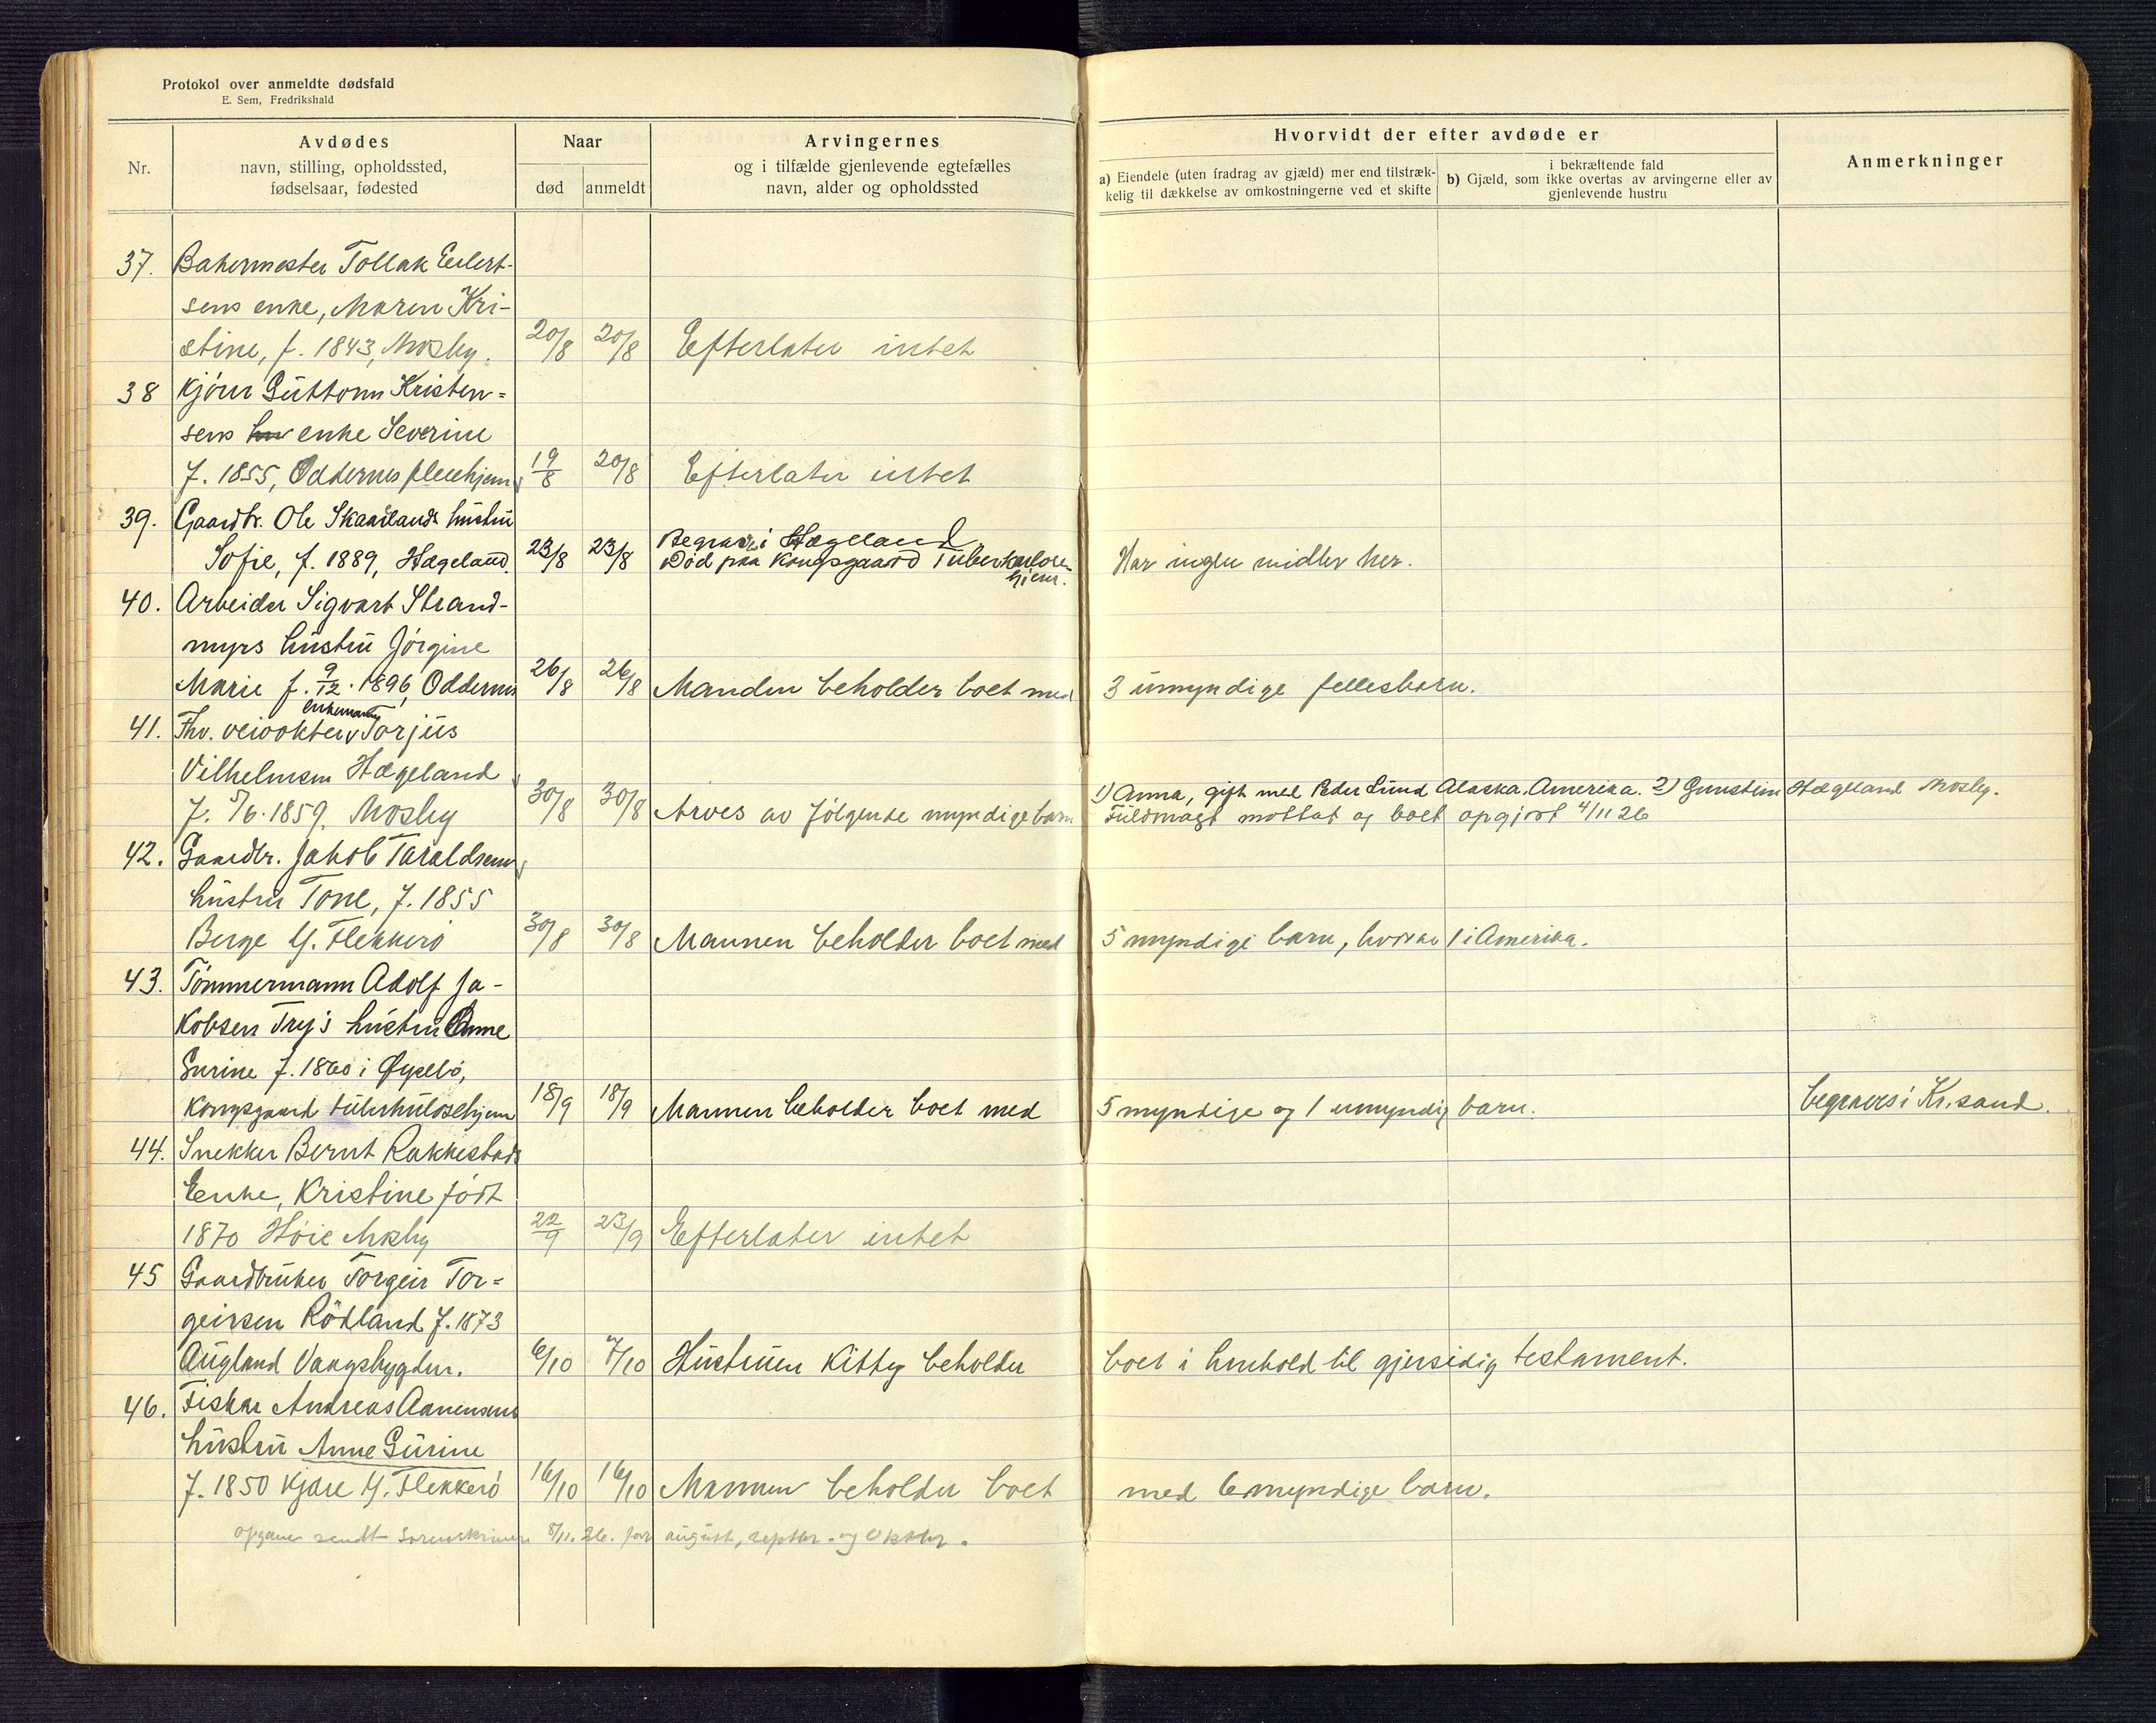 Protokol over anmeldte dødsfald
E. Sem, Fredrikshald
Nr.
Avdødes
navn, stilling, opholdssted,
fødselsaar, fødested
Naar
død
anmeldt
Arvingernes
og i tilfælde gjenlevende egtefælles
navn, alder og opholdssted
Hvorvidt der efter avdøde er
a) Eiendele (uten fradrag av gjæld) mer end tilstræk-
kelig til dækkelse av omkostningerne ved et skifte
i bekræftende fald
b) Gjæld, som ikke overtas av arvingerne eller av
gjenlevende hustru
Anmerkninger
37. Bakermester Tollak Eilert-
sens enke, Maren Kri-
stine, f. 1843, Mosby. 20/8 20/8 Efterlater intet
38 Kjører Guttorm Kristen=
sens enke Severine
f. 1855, Oddernes pleiehjem 19/8 20/8 Efterlater intet
39. Gaardbr. Ole Skaarlands hustru
Sofie, f. 1889, Hægeland. 23/8 23/8 Begraves i Hægeland
Død paa Kongsgaard Tuberkulose-
hjem. Har inglen midler her.
40. Arbeider Sigvart Strand-
myrs hustru Jörgine
Marie f. 9/12. 1896, Oddernes 26/8 26/8 Manden beholder boet med 3 umyndige fellesbarn.
41. Fhv. veivokter enkemand Torjus
Vilhelmsen Hægeland
f. 5/6. 1859, Mosby 30/8 30/8 Arves av følgende myndige barn 1) Anna, gift med Peder Lund Alaska. Amerika. 2) Gunstein Hægeland Mosby.
Fuldmagt mottat og boet opgjort 4/11 26
42. Gaardbr. Jakob Taraldsens
hustru Tone, f. 1855
Berge Y. Flekkerö 30/8 30/8 Mannen beholder boet med 5 myndige barn, hvorav 1 i Amerika.
43. Tömmermann Adolf Ja-
kobsen Try's hustru Anne
Gurine f. 1860 i Øyslebö,
Kongsgaard tuberkulosehjem 18/9 18/9 Mannen beholder boet med 5 myndige og 1 umyndig barn. begraves i Kr.sand.
44. Snekker Bernt Rakkestads
Enke, Kristine født
1870 Höie Mosby 22/9 23/9 Efterlater intet
45 Gaardbruker Torgeir Tor=
geirsen Rödland f. 1873
Augland Vaagsbygden. 6/10 7/10 Hustruen Kitty beholder boet i henhold til gjensidig testament.
46. Fisker Andreas Aanensens
hustru Anne Gurine
f. 1850 Kjære Y. Flekkerö 16/10 16/10 Mannen beholder boet med 6 myndige barn.
Opgave sendt Sorenskriveren 5/11. 26. for august, septbr. og Oktbr.